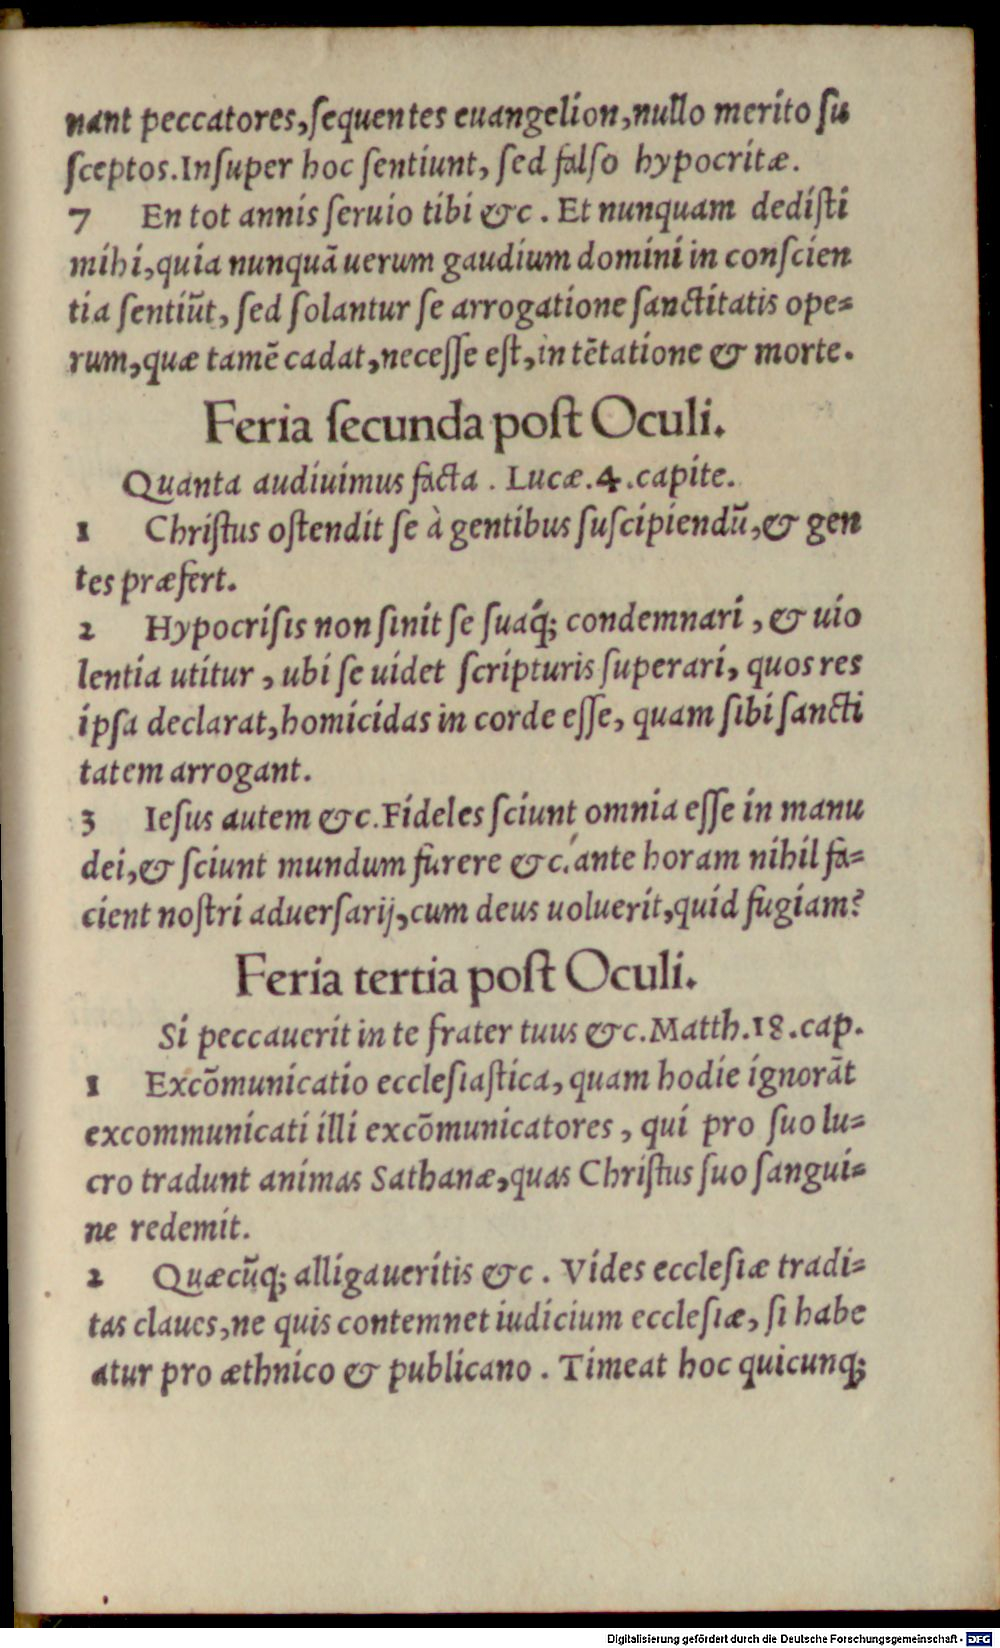 nant peccatores,ſequentes euangelion,nullo merito ſu
ſceptos.Inſuper hoc ſentiunt, ſed falſo hypocritæ.
7 En tot annis ſeruio tibi &c . Et nunquam dediſti
mihi,quia nunquā uerum gaudium domini in conſcien
tia ſentiūt, ſed ſolantur ſe arrogatione ſanctitatis ope=
rum,quæ tamē cadat,neceſſe eſt,in tētatione & morte.
Feria ſecunda poſt Oculi.
Quanta audiuimus facta . Lucæ.4.capite.
1 Chriſtus oſtendit ſe à gentibus ſuſcipiendū,& gen
tes præfert.
2 Hypocriſis non ſinit ſe ſuáq; condemnari , & uio
lentia utitur , ubi ſe uidet ſcripturis ſuperari, quos res
ipſa declarat,homicidas in corde eſſe, quam ſibi ſancti
tatem arrogant.
3 Ieſus autem &c.Fideles ſciunt omnia eſſe in manu
dei,& ſciunt mundum furere &c. ante horam nihil fa=
cient noſtri aduerſarij,cum deus uoluerit,quid fugiam?
Feria tertia poſt Oculi.
Si peccauerit in te frater tuus &c.Matth.18.cap.
1 Excōmunicatio eccleſiaſtica, quam hodie ignorāt
excommunicati illi excōmunicatores , qui pro ſuo lu=
cro tradunt animas Sathanæ,quas Chriſtus ſuo ſangui=
ne redemit.
2 Quæcūq; alligaueritis &c . Vides eccleſiæ tradi=
tas claues,ne quis contemnet iudicium eccleſiæ, ſi habe
atur pro æthnico & publicano . Timeat hoc quicunq;
Digitalisierung gefördert durch die Deutsche Forschungsgemeinschaft - DFG